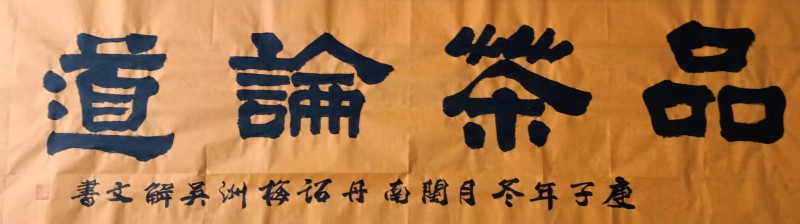 品茶論道
庚子年冬月閩南丹诏梅洲吴解文書